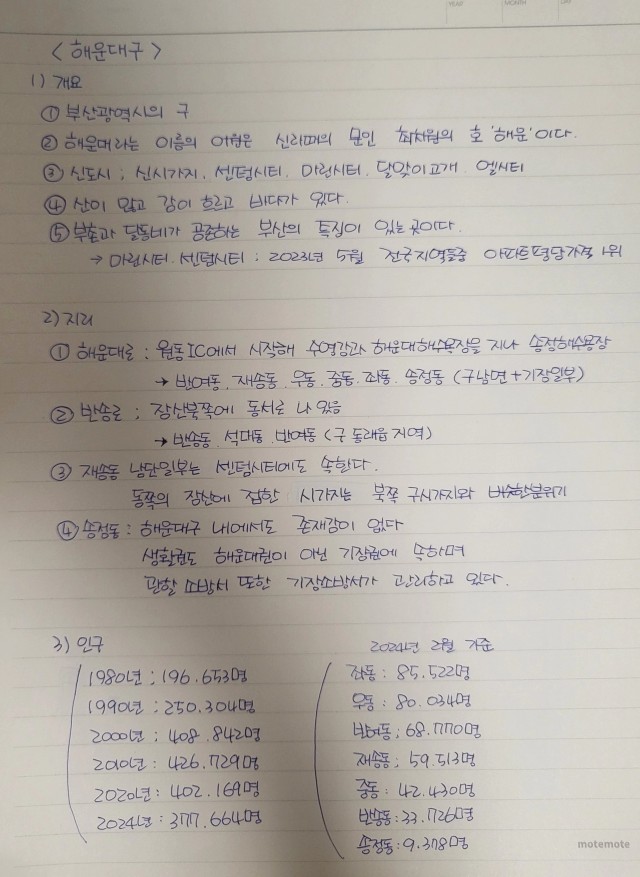 YEAR MONTH DAY
< 해운대구 >
1) 개요
① 부산광역시의 구
② 해운대라는 이름의 어원은 신라때의 문인 최치원의 호 '해운'이다.
③ 신도시 ; 신시가지, 센텀시티, 마린시티, 달맞이고개, 엘시티
④ 산이 많고 강이 흐르고 바다가 있다.
⑤ 부촌과 달동네가 공존하는 부산의 특집이 있는 곳이다.
→ 마린시티. 센텀시티 : 2023년 5월 전국지역들중 아파트평당가격 1위
2) 지리
① 해운대로 : 원동IC에서 시작해 수영강과 해운대해수욕장을 지나 송정해수욕장
→ 반여동, 재송동, 우동, 중동, 좌동, 송정동 (구남면+기장일부)
② 반송로 ; 장산북쪽에 동서로 나 있음
→ 반송동, 석대동, 반여동 (구 동래읍 지역)
③ 재송동 남단일부는 센텀시티에도 속한다.
동쪽의 장산에 접한 시가지는 북쪽 구시가지와 비슷한분위기
④ 송정동 : 해운대구 내에서도 존재감이 없다
생활권도 해운대권이 아닌 기장권에 속하며
관할 소방서 또한 기장소방서가 관리하고 있다.
3) 인구
1980년 ; 196.653명
1990년 ; 250.304명
2000년 : 408.842명
2010년 : 426.729명
2020년 : 402.169명
2024년 : 377.664명
2024년 2월 기준
좌동 : 85.522명
우동 : 80.034명
반여동 ; 68.770명
재송동 ; 59.513명
중동 : 42.430명
반송동 : 33.726명
송정동 : 9.378명
motemote